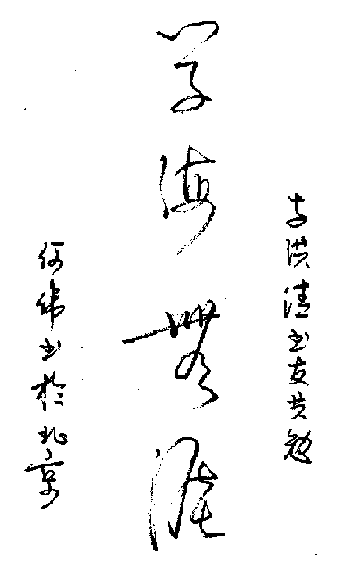 李洪清书友共勉
学海無涯
何伟书於北京